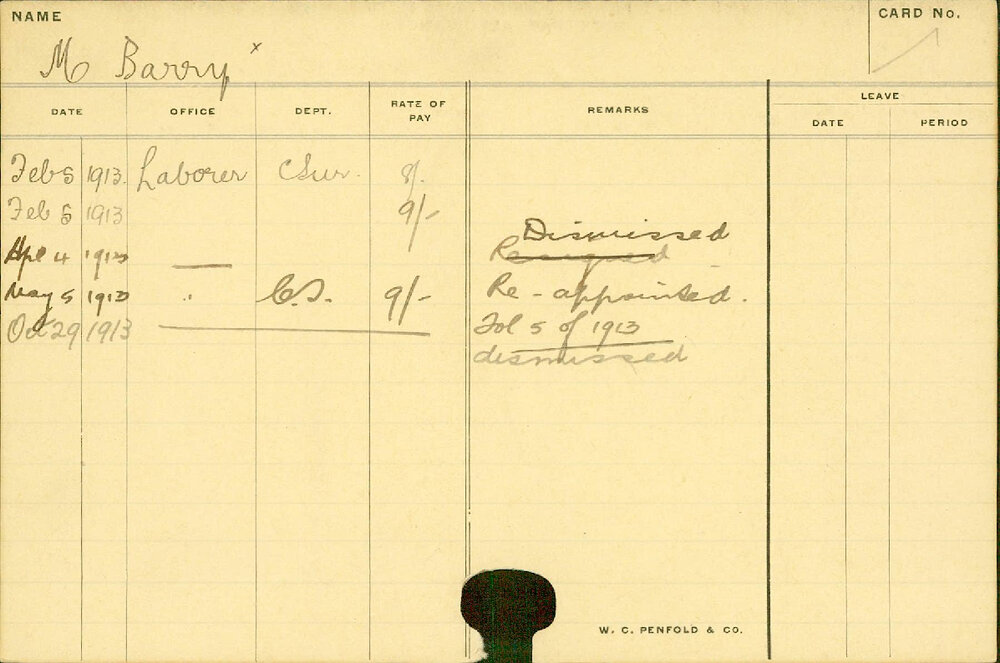 NAME
CARD No.
M Barry x
DATE OFFICE DEPT. RATE OF PAY REMARKS LEAVE
DATE PERIOD
Feb 5 1913. Laborer C Sur. 8/.
Feb 5 1913 9/-
Dismissed
Apl 4 1913 — Resigned
May 5 1913 " C.S. 9/- Re-appointed.
Oct 29 1913 Fol 5 of 1913
dismissed
W. C. PENFOLD & CO.